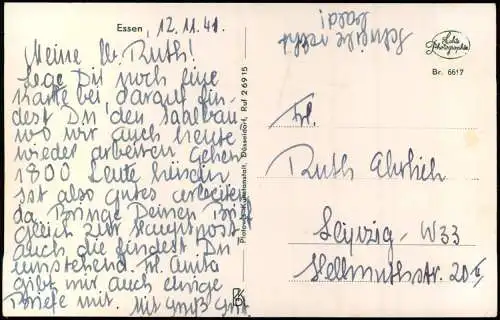 Essen, 12.11.41.
Meine lb. Ruth!
Lege Dir noch eine
Karte bei, darauf fin-
dest Du den Saalbau
wo wir auch heute
wieder arbeiten. Gehen
1800 Leute hinein
ist also gutes arbeiten
da. Bringe Deinen Brief
gleich zur Hauptpost
auch die findest Du
umstehend. Frl. Anita
gibt mir auch einige
Briefe mit. Mit Gruß
Schreibe recht
bald!
Echte
Photographie
Br. 6617
Kunstanstalt, Düsseldorf, Ruf 26915
Frl.
Ruth Ehrlich
Leipzig-W33
Hellmuthstr. 20